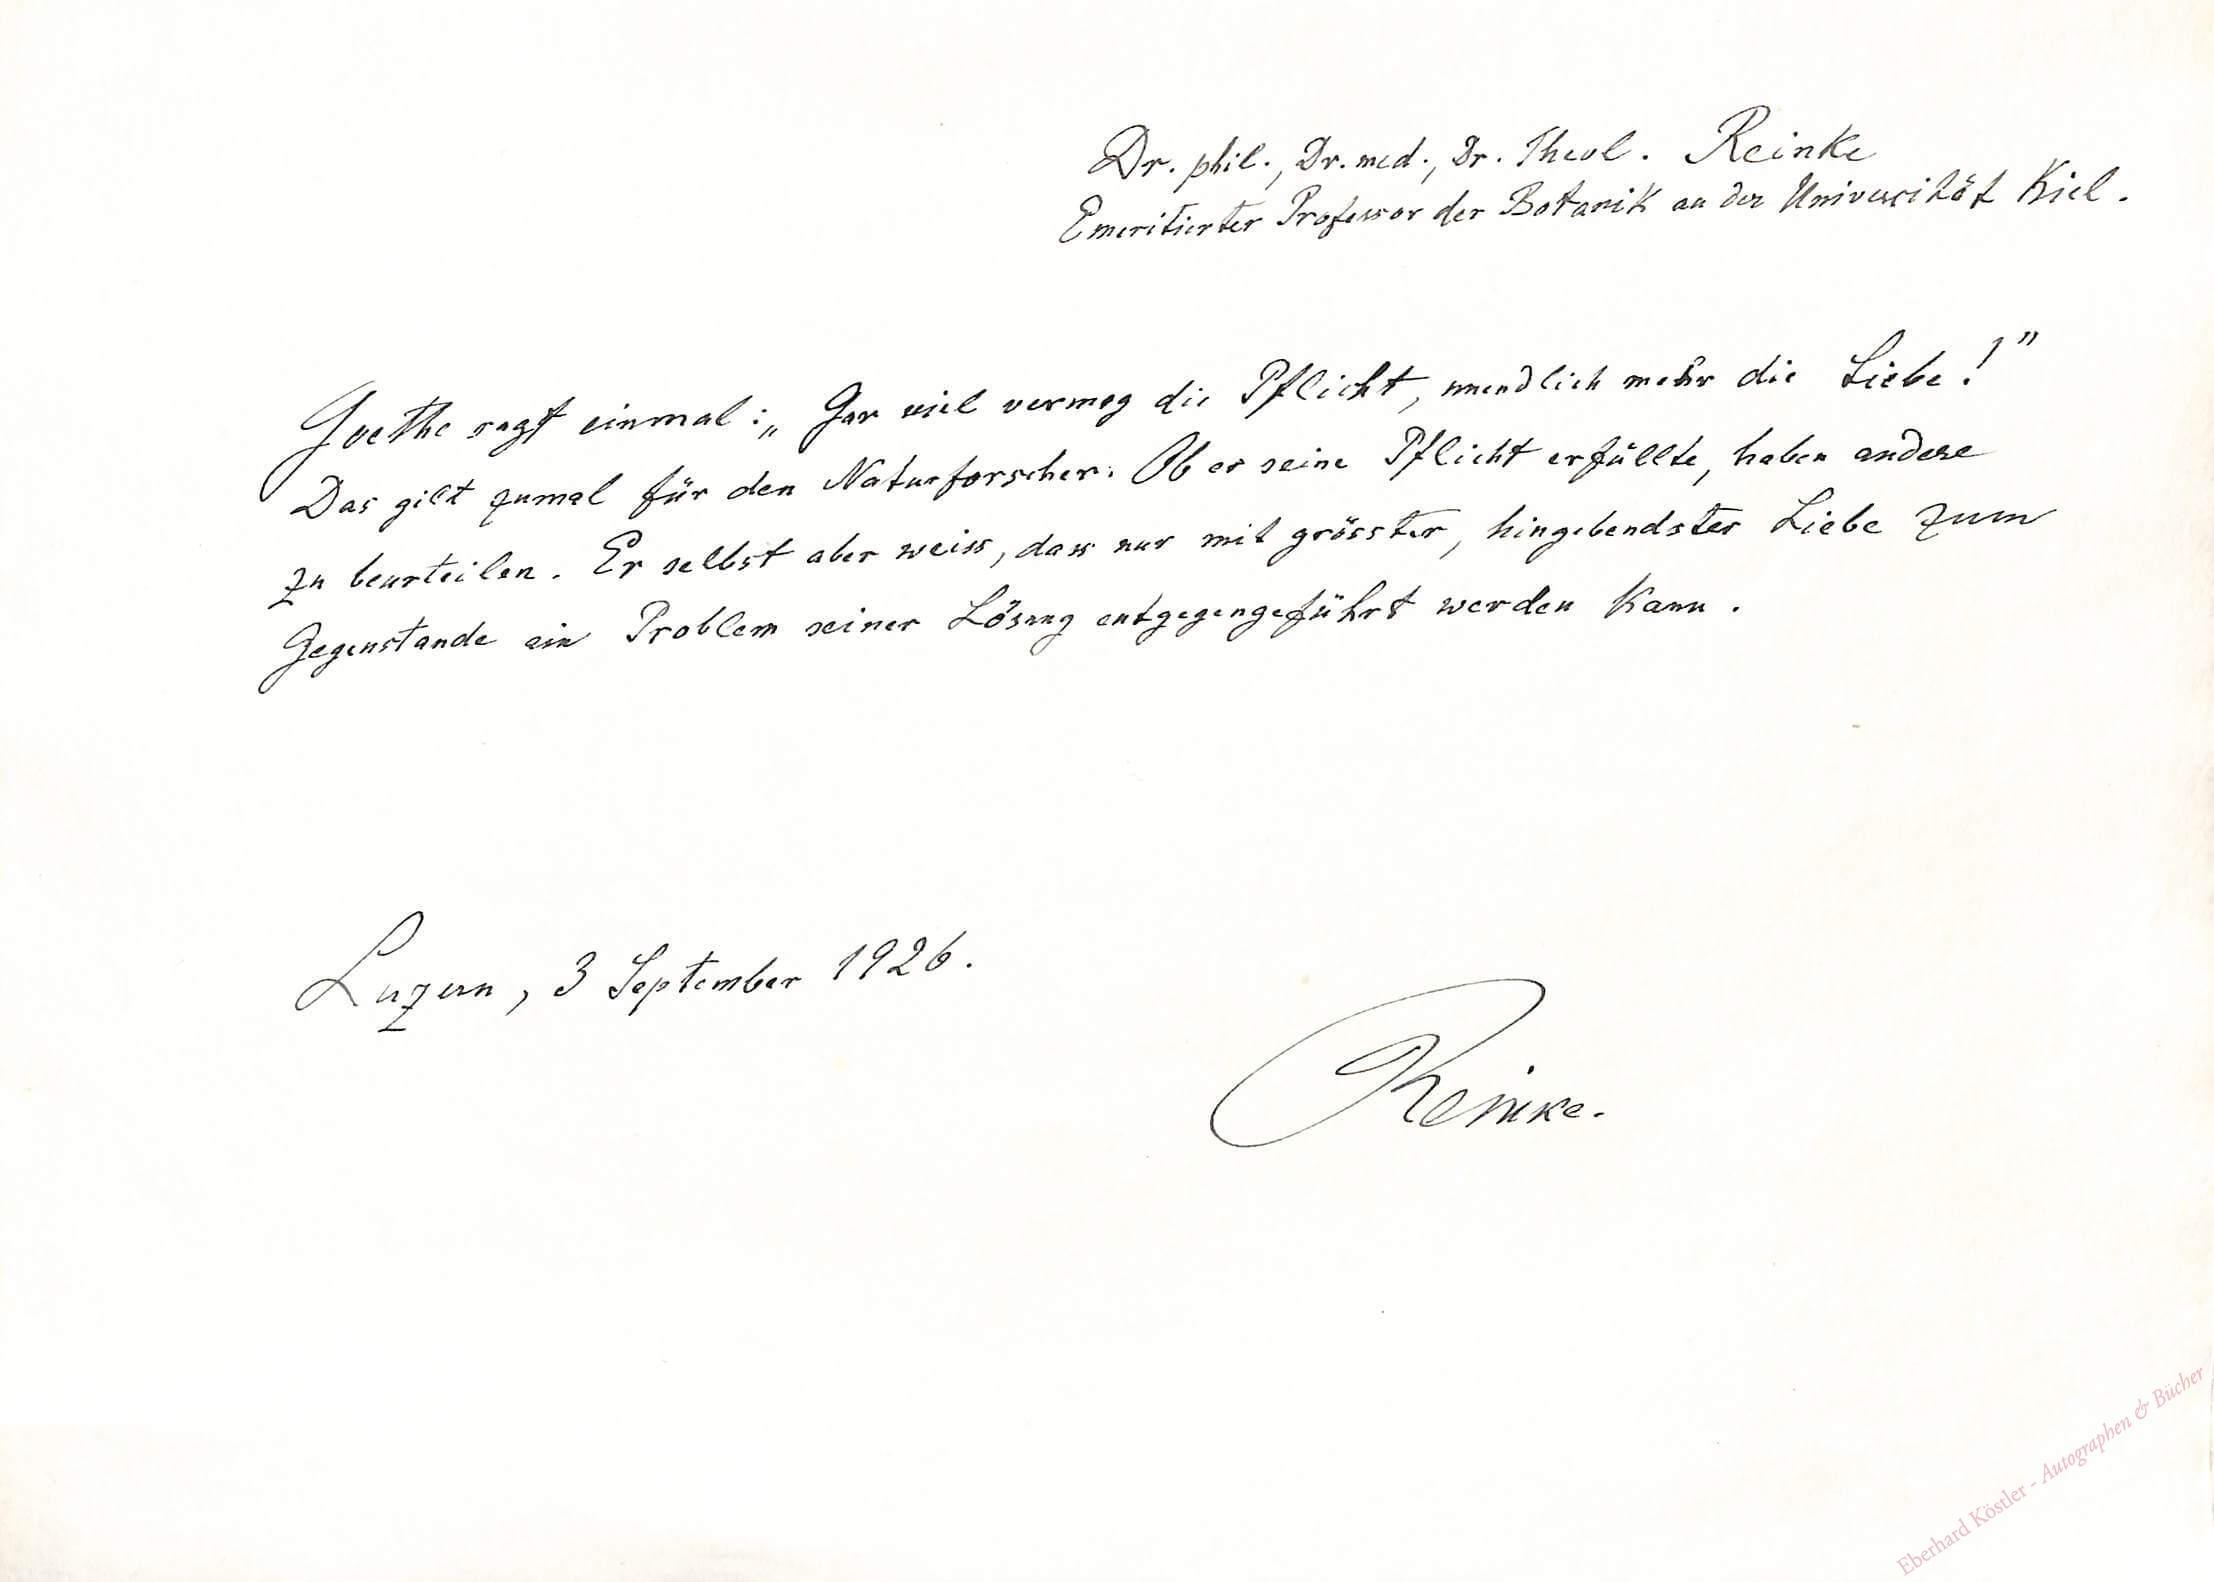 Dr. phil., Dr. med., Dr. Theol. Reinke
Emeritierter Professor der Botanik an der Universität Kiel.
Goethe sagt einmal: „Gar viel vermag die Pflicht, unendlich mehr die Liebe!”
Das gilt zumal für den Naturforscher. Ob er seine Pflicht erfüllte, haben andere
zu beurteilen. Er selbst aber weiss, dass nur mit grösster, hingebendster Liebe zum
Gegenstande ein Problem seiner Lösung entgegengeführt werden kann.
Luzern, 3 September 1926.
Reinke.
Eberhard Köstler - Autographen & Bücher